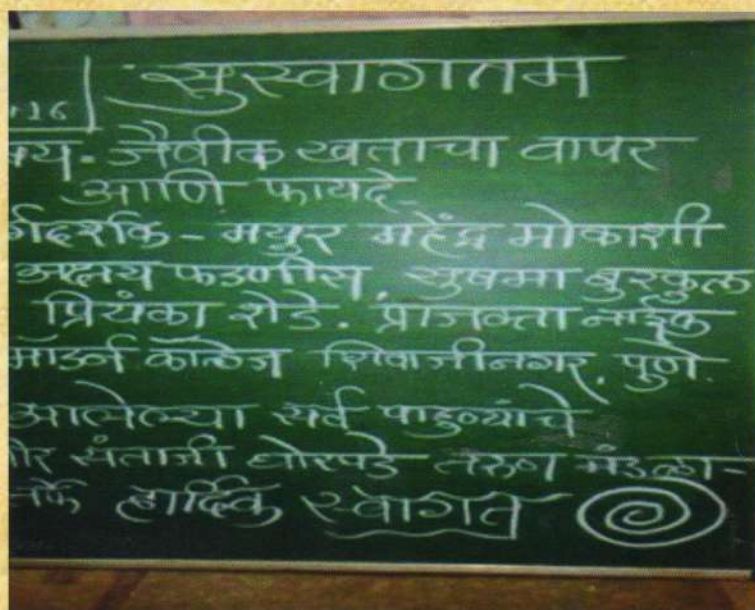 सुस्वागतम
16
जैवीक खताचा वापर
आणि फायदे.
र्गदर्शक - मयुर महेंद्र मोकाशी
अक्षय फडणीस, सुषमा बुरकुल
प्रियंका शेडे. प्राजक्ता नाईक
मॉडर्न कॉलेज शिवाजीनगर, पुणे.
आलेल्या सर्व पाहुण्यांचे
संताजी घोरपडे तरुण मंडळा-
र्फे हार्दिक स्वागत